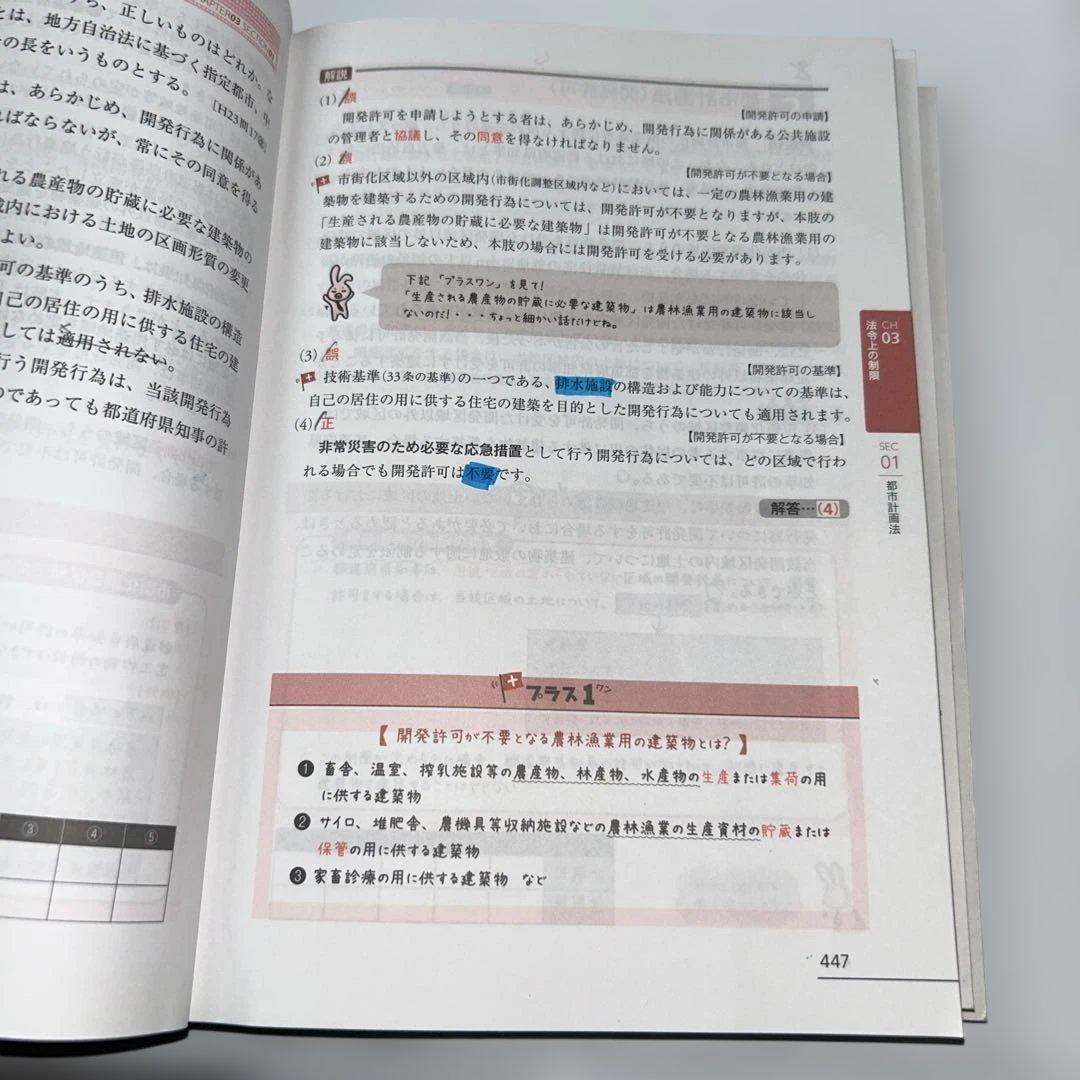 CHAPTER03 SECTION01
ら、正しいものはどれか。な
とは、地方自治法に基づく指定都市、中
の長をいうものとする。
[H23問17改]
は、あらかじめ、開発行為に関係があ
ればならないが、常にその同意を得る
れる農産物の貯蔵に必要な建築物の
域内における土地の区画形質の変更
よい。
可の基準のうち、排水施設の構造
自己の居住の用に供する住宅の建
しては適用されない。
行う開発行為は、当該開発行為
のであっても都道府県知事の許
③ ④ ⑤
解説
(1) 誤
【開発許可の申請】
開発許可を申請しようとする者は、あらかじめ、開発行為に関係がある公共施設
の管理者と協議し、その同意を得なければなりません。
(2) 誤
【開発許可が不要となる場合】
市街化区域以外の区域内(市街化調整区域内など)においては、一定の農林漁業用の建
築物を建築するための開発行為については、開発許可が不要となりますが、本肢の
「生産される農産物の貯蔵に必要な建築物」は開発許可が不要となる農林漁業用の
建築物に該当しないため、本肢の場合には開発許可を受ける必要があります。
下記「プラスワン」を見て!
「生産される農産物の貯蔵に必要な建築物」は農林漁業用の建築物に該当し
ないのだ!・・・ちょっと細かい話だけどね。
(3) 誤
【開発許可の基準】
技術基準(33条の基準)の一つである、排水施設の構造および能力についての基準は、
自己の居住の用に供する住宅の建築を目的とした開発行為についても適用されます。
(4) 正
【開発許可が不要となる場合】
非常災害のため必要な応急措置として行う開発行為については、どの区域で行わ
れる場合でも開発許可は不要です。
解答…(4)
プラス1ワン
【 開発許可が不要となる農林漁業用の建築物とは? 】
❶ 畜舎、温室、搾乳施設等の農産物、林産物、水産物の生産または集荷の用
に供する建築物
❷ サイロ、堆肥舎、農機具等収納施設などの農林漁業の生産資材の貯蔵または
保管の用に供する建築物
❸ 家畜診療の用に供する建築物 など
CH
03
法令上の制限
SEC
01
都市計画法
447